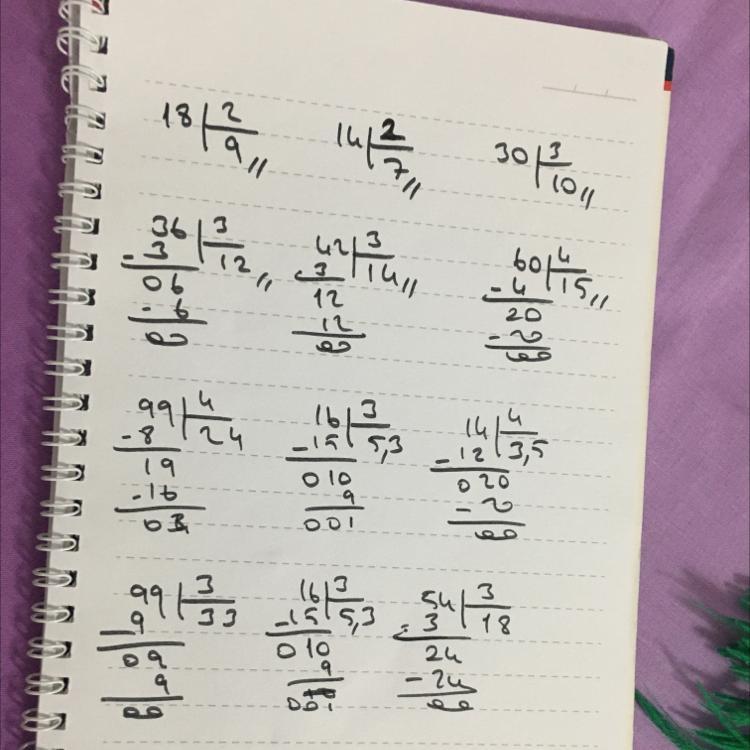 18 2 14 2 30 3
9 // 7 // 10 //
36 3 42 3 60 4
- 3 12 // - 3 14 // - 4 15 //
06 12 20
- 6 12 - 20
00 00 00
99 4 16 3 14 4
- 8 24 - 15 5,3 - 12 3,5
19 010 020
- 16 9 - 20
03 001 00
99 3 16 3 54 3
- 9 33 - 15 5,3 - 3 18
09 010 24
9 9 - 24
00 001 00